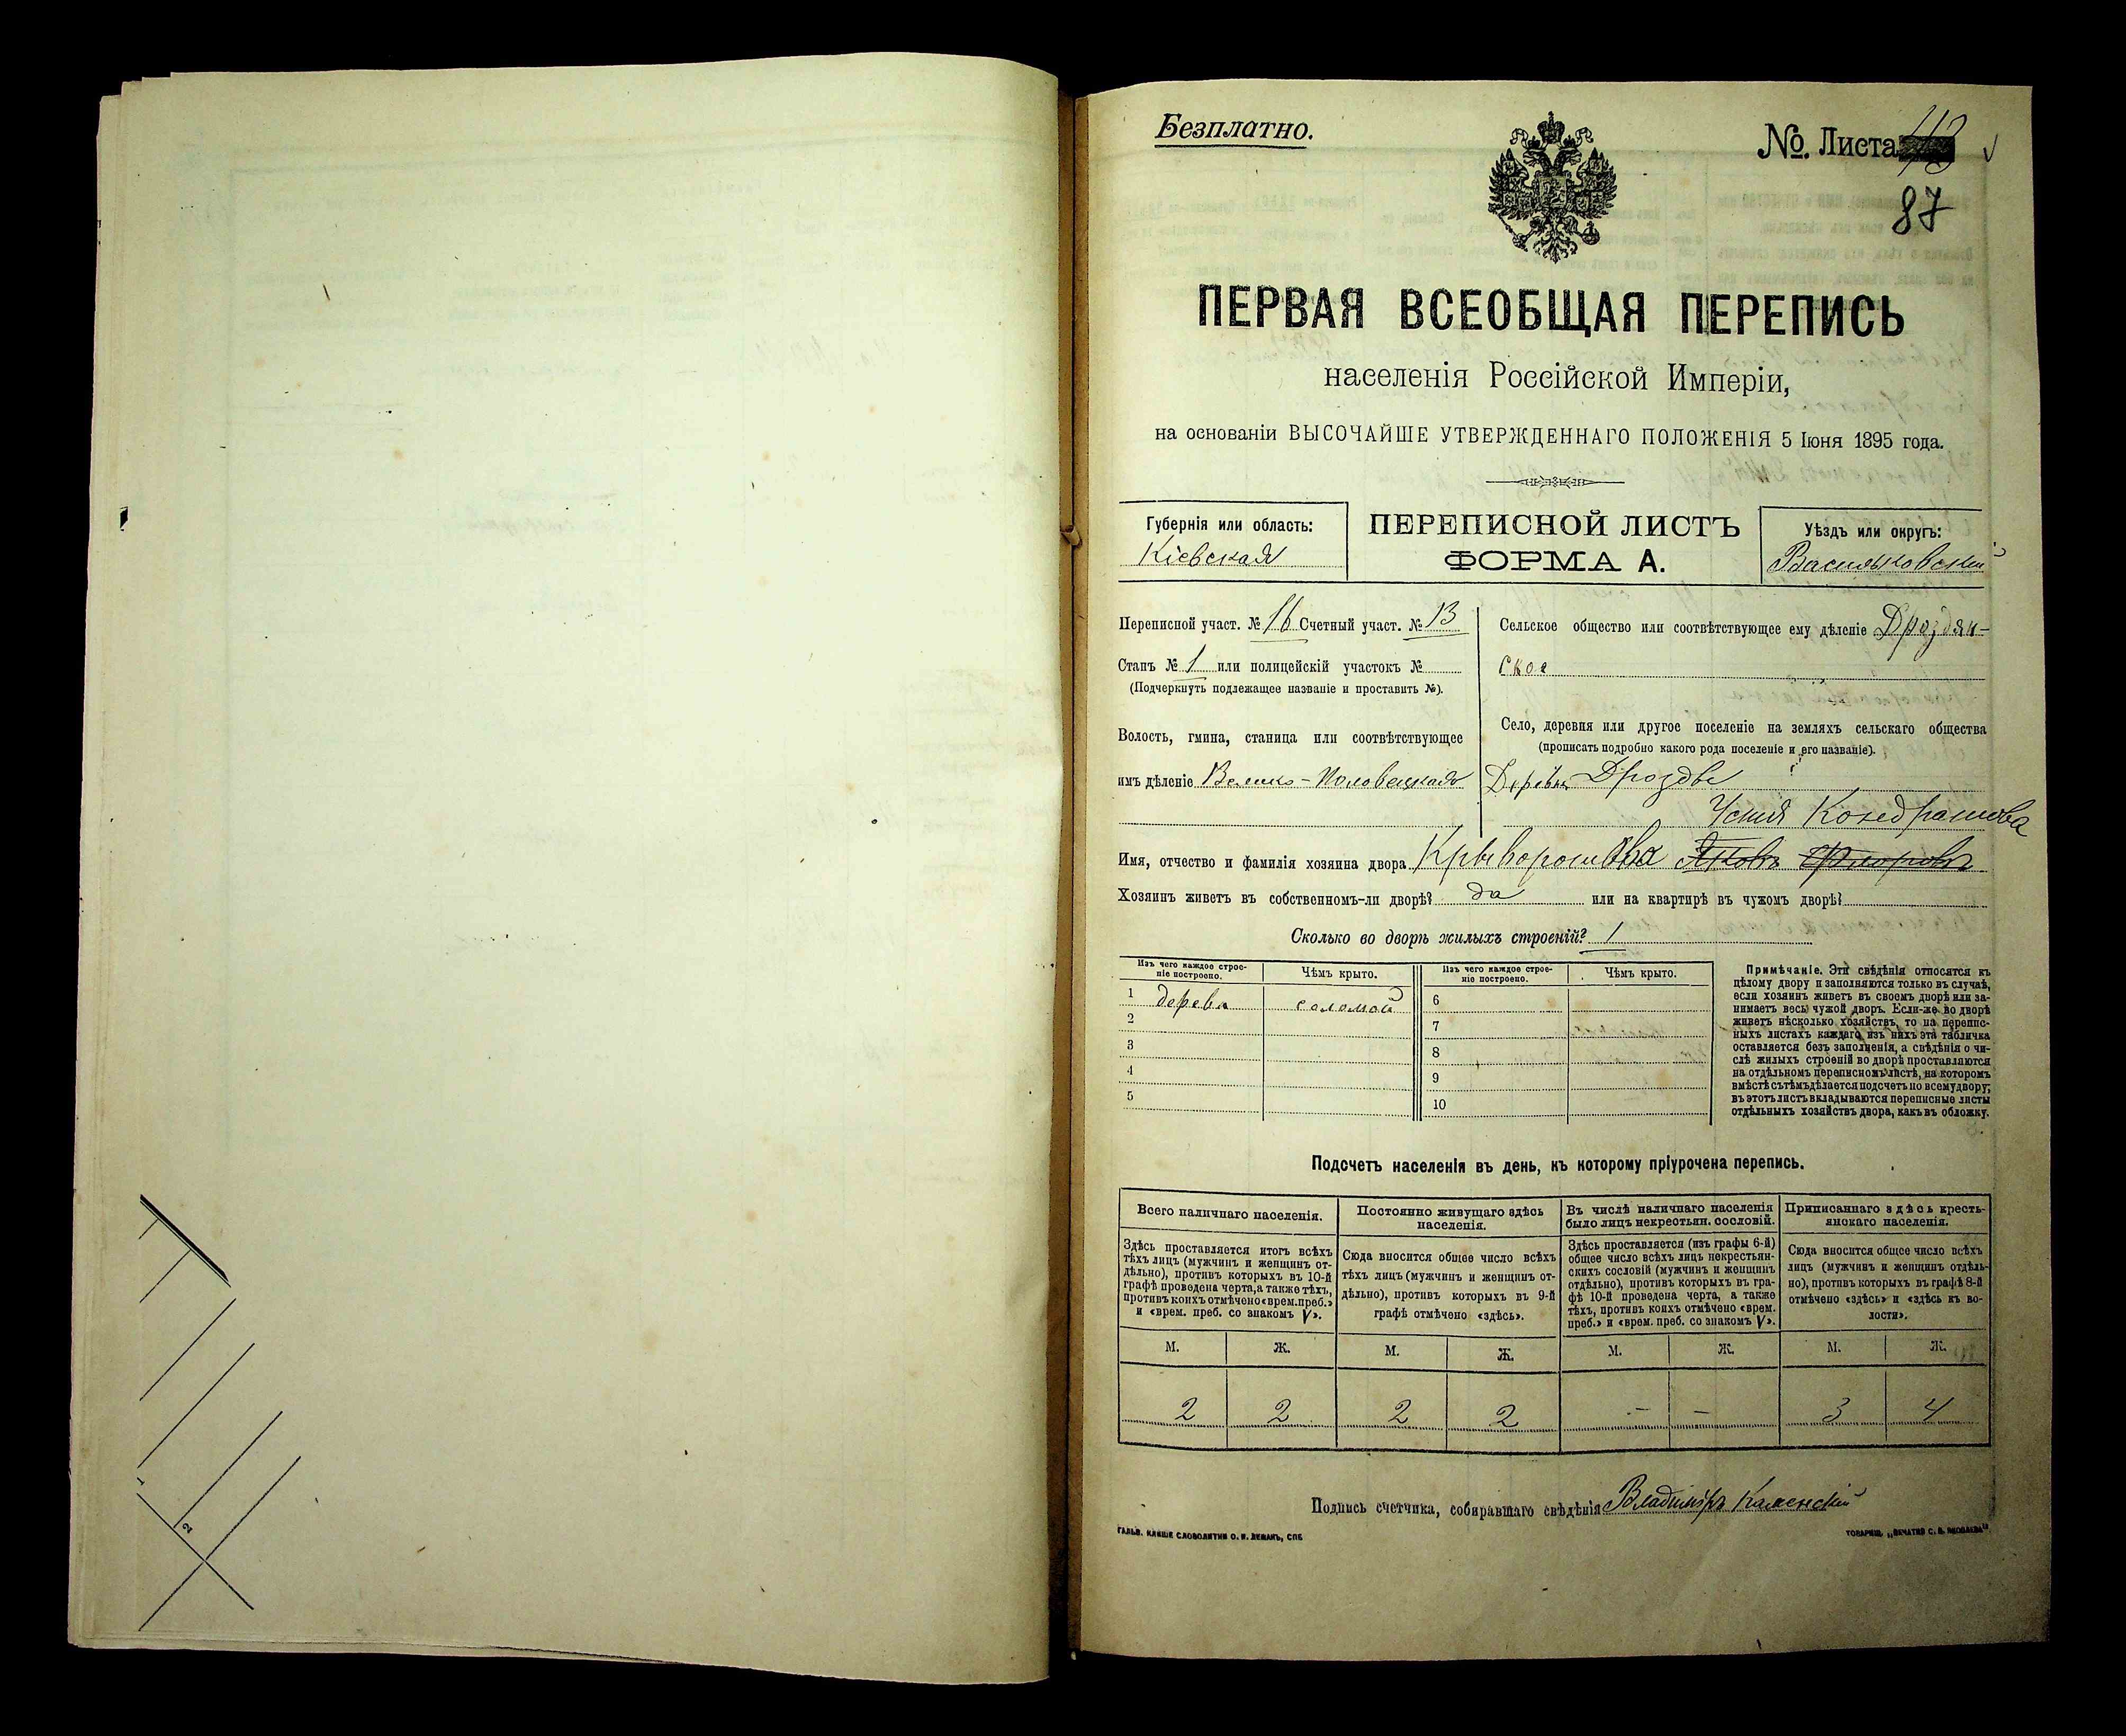 Безплатно.
№. Листа 43
87
ПЕРВАЯ ВСЕОБЩАЯ ПЕРЕПИСЬ
населенія Россійской Имперіи,
на основаніи ВЫСОЧАЙШЕ УТВЕРЖДЕННАГО ПОЛОЖЕНІЯ 5 Іюня 1895 года.
Губернія или область:
Кіевская
ПЕРЕПИСНОЙ ЛИСТЪ
ФОРМА А.
Уѣздъ или округъ:
Васильковскій
Переписной участ. № 16 Счетный участ. № 13
Станъ № 1 или полицейскій участокъ №
(Подчеркнуть подлежащее названіе и проставить №).
Волость, гмина, станица или соотвѣтствующее
имъ дѣленіе Велико-Половецкая
Сельское общество или соотвѣтствующее ему дѣленіе Дроздян-
ское
Село, деревня или другое поселеніе на земляхъ сельскаго общества
(прописать подробно какого рода поселеніе и его названіе).
Деревня Дрозды
Устія Кондратова
Имя, отчество и фамилія хозяина двора Крыворот Яковъ
Хозяинъ живетъ въ собственномъ-ли дворѣ? да или на квартирѣ въ чужомъ дворѣ?
Сколько во дворѣ жилыхъ строеній? 1
Изъ чего каждое строе-
ніе построено.
Чѣмъ крыто.
Изъ чего каждое строе-
ніе построено.
Чѣмъ крыто.
1 дерева соломой
2
3
4
5
6
7
8
9
10
Примѣчаніе. Эти свѣдѣнія относятся къ
цѣлому двору и заполняются только въ случаѣ,
если хозяинъ живетъ въ своемъ дворѣ или за-
нимаетъ весь чужой дворъ. Если-же во дворѣ
живетъ нѣсколько хозяйствъ, то на перепис-
ныхъ листахъ каждаго изъ нихъ эта табличка
оставляется безъ заполненія, а свѣдѣнія о чи-
слѣ жилыхъ строеній во дворѣ проставляются
на отдѣльномъ переписномъ листѣ, на которомъ
вмѣстѣ съ тѣмъ дѣлается подсчетъ по всему двору;
въ этотъ листъ вкладываются переписные листы
отдѣльныхъ хозяйствъ двора, какъ въ обложку.
Подсчетъ населенія въ день, къ которому пріурочена перепись.
Всего наличнаго населенія.
Здѣсь проставляется итогъ всѣхъ
тѣхъ лицъ (мужчинъ и женщинъ от-
дѣльно), противъ которыхъ въ 10-й
графѣ проведена черта, а также тѣхъ,
противъ коихъ отмѣчено «врем. преб.»
и «врем. преб. со знакомъ V».
Постоянно живущаго здѣсь
населенія.
Сюда вносится общее число всѣхъ
тѣхъ лицъ (мужчинъ и женщинъ от-
дѣльно), противъ которыхъ въ 9-й
графѣ отмѣчено «здѣсь».
Въ числѣ наличнаго населенія
было лицъ некрестьян. сословій.
Здѣсь проставляется (изъ графы 6-й)
общее число всѣхъ лицъ некрестьян-
скихъ сословій (мужчинъ и женщинъ
отдѣльно), противъ которыхъ въ гра-
фѣ 10-й проведена черта, а также
тѣхъ, противъ коихъ отмѣчено «врем.
преб.» и «врем. преб. со знакомъ V».
Приписаннаго здѣсь кресть-
янскаго населенія.
Сюда вносится общее число всѣхъ
лицъ (мужчинъ и женщинъ отдѣль-
но), противъ которыхъ въ графѣ 8-й
отмѣчено «здѣсь» и «здѣсь къ во-
лости».
М. Ж. М. Ж. М. Ж. М. Ж.
2 2 2 2 – – 3 4
Подпись счетчика, собиравшаго свѣдѣнія Владиміръ Каменскій
ГАЛЬВ. КЛИШЕ СЛОВОЛИТНИ О. И. ЛЕМАНЪ, СПБ.
ТОВАРИЩ. „ПЕЧАТНЯ С. П. ЯКОВЛЕВА“
1
2